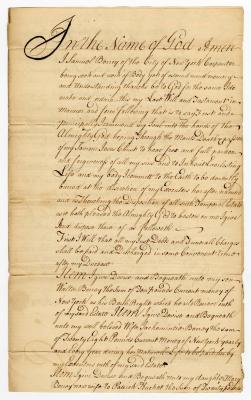 In the Name of God Amen
I Samuel Borrey of the City of New York Carpenter
being sick and weak of Body but of sound mind memory
and Understanding thanks be to God for the same Do
make and ordain this my Last Will and Testament in
manner and form following that is to say First and
principally I commend my Soul into the hands of the
Almighty God hoping through the Merits Death and passion
of my Saviour Jesus Christ to have full and free pardon
and forgiveness of all my sins and to Inherit Everlasting
Life and my body I commit to the Earth to be decently
buried at the discretion of my Executors hereafter named
and as touching the Disposition of all such Temporal Estate
as it hath pleased the Almighty God to bestow on me I give
and dispose there of as followeth
First I Will that all my Just Debts and Funeral Charges
shall be paid and Discharged in some Convenient time
after my Decease
Item I give Devise and Bequeath unto my son
the Sum of Ten Pounds Currant money of
New York as his Birth Right which he is to Receive out
of my said Estate Item I give Devise and Bequeath
unto my well beloved Wife the sum
of Twenty Eight Pounds Currant Money of New York yearly
and every year during her Natural Life to be paid her by
my Executors out of my said Estate
Item I give Devise and Bequeath unto my daughter Mary
now wife to Patrick the Sum of Twenty